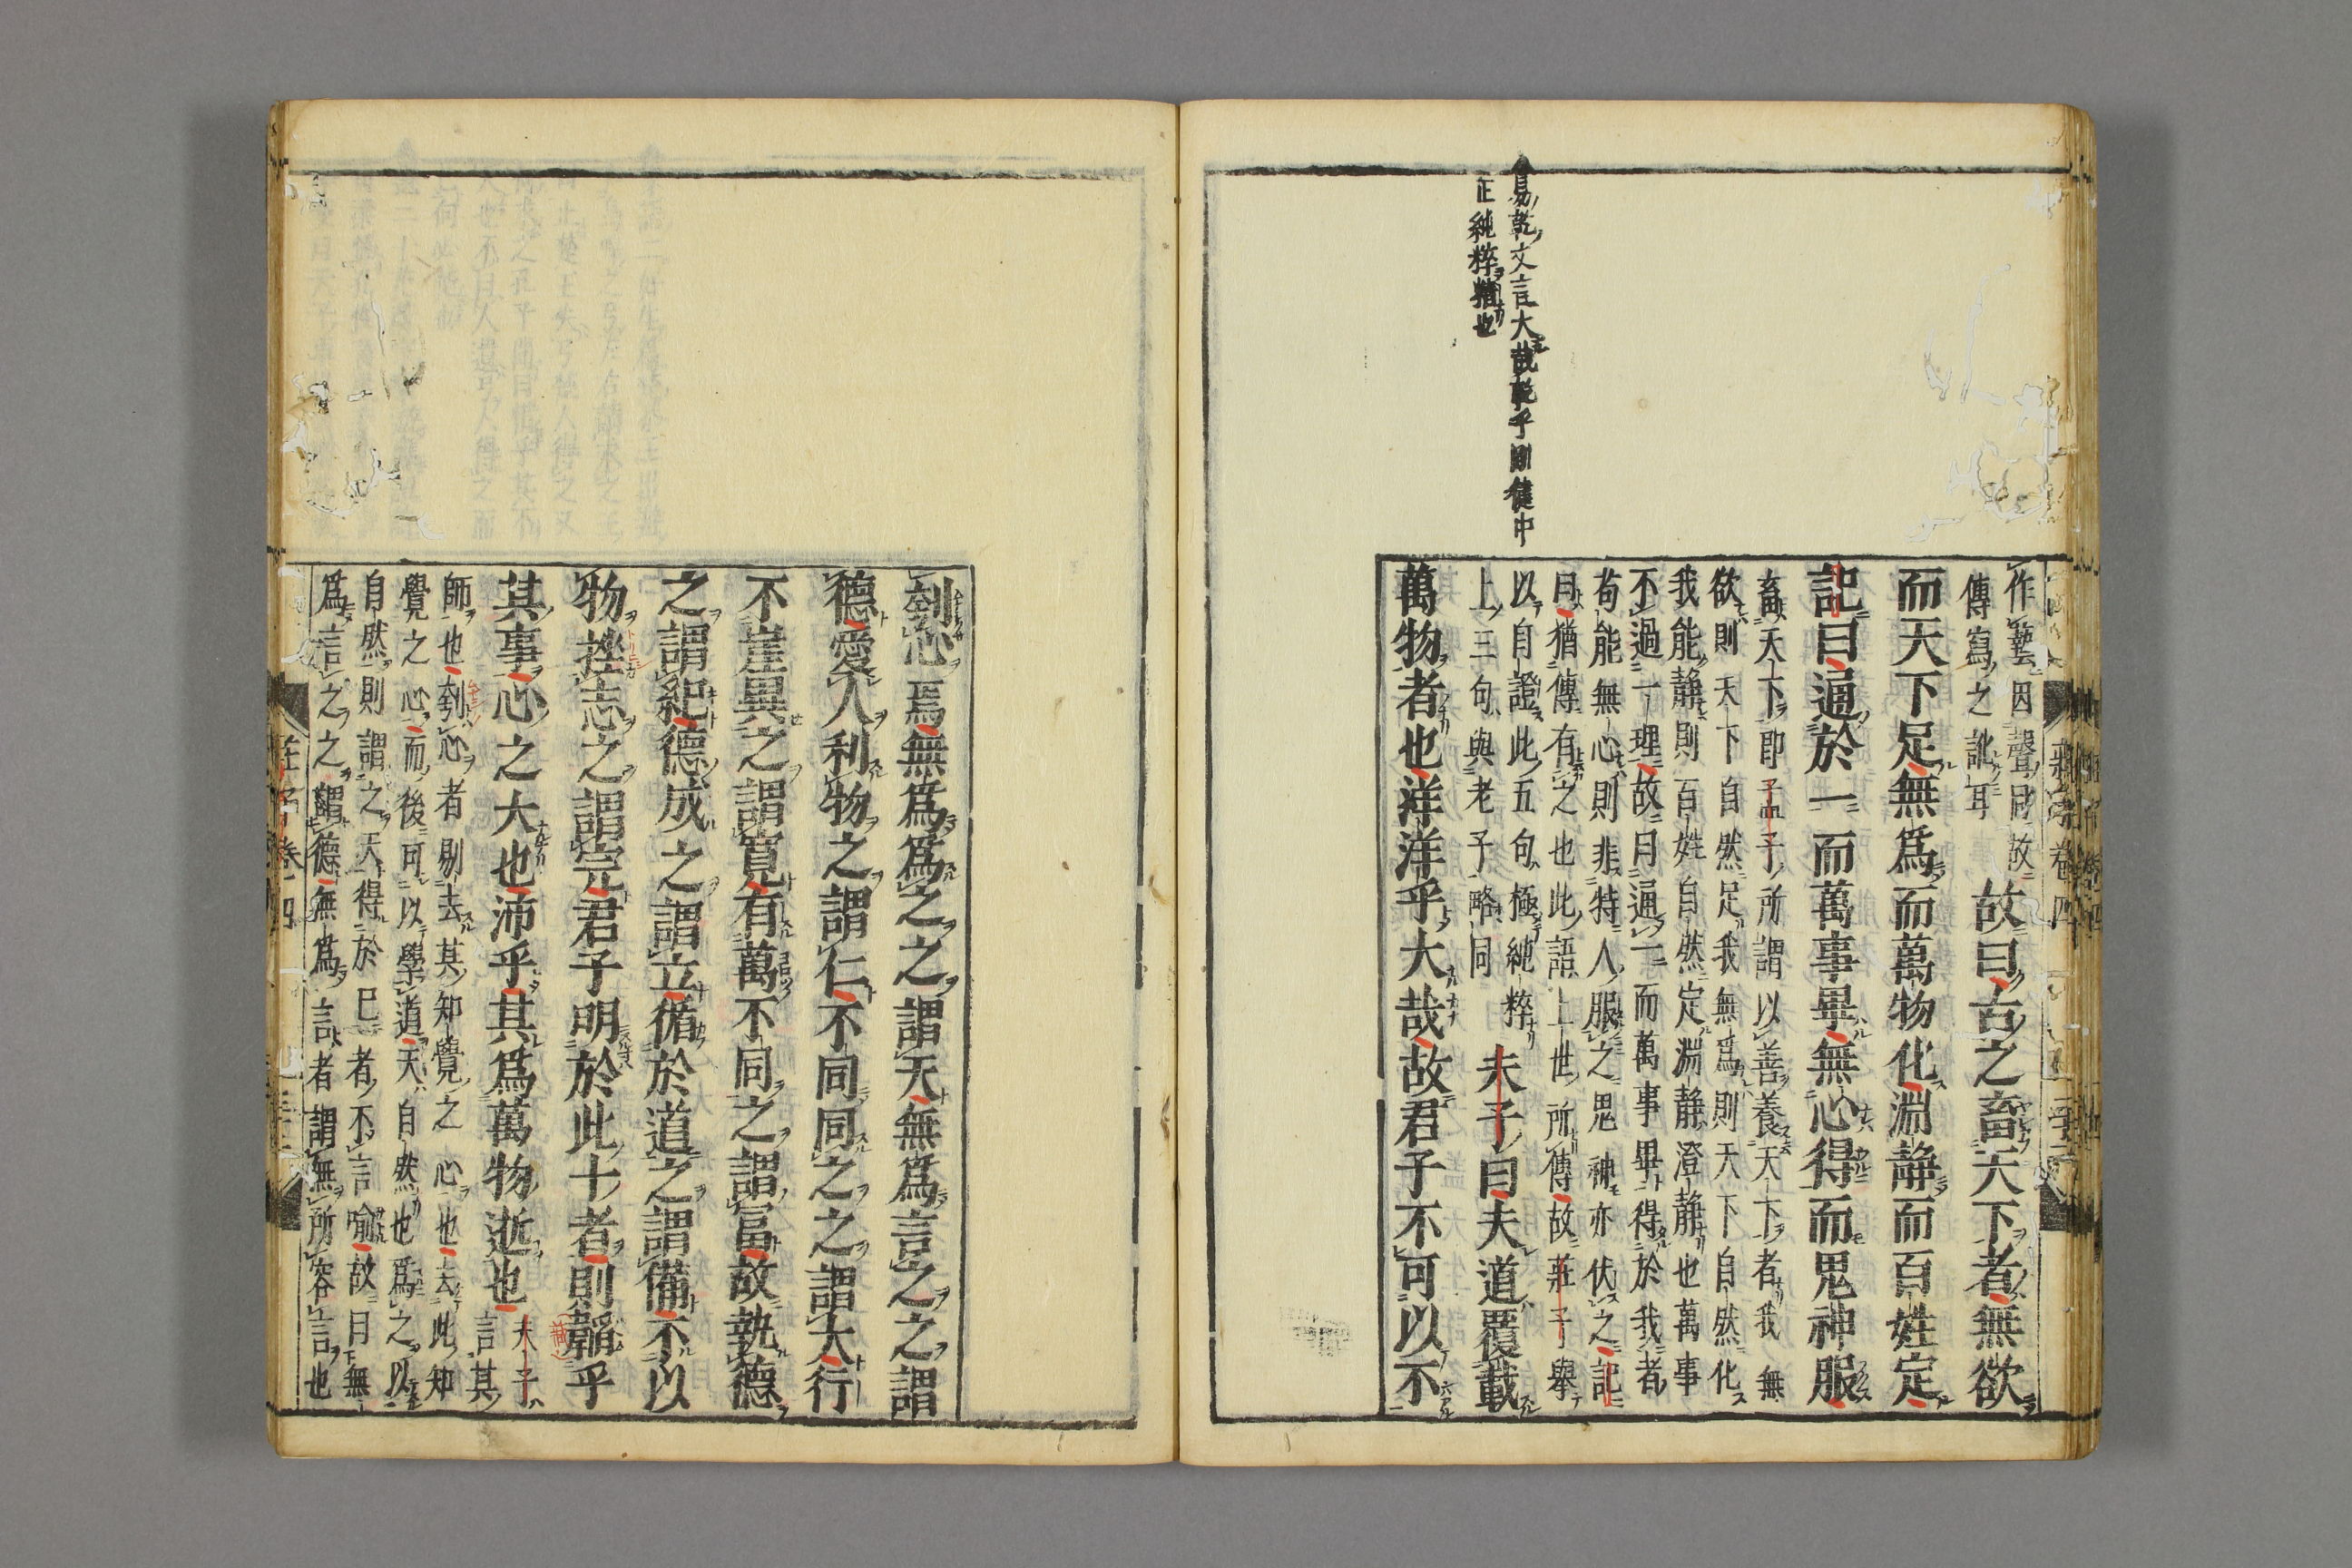 易乾文言大哉乾乎剛健中
正純粹精也
作藝因聲同故
傳寫之訛耳
故曰古之畜天下者無欲
而天下足無爲而萬物化淵靜而百姓定
記曰通於一而萬事畢無心得而鬼神服
畜天下即孟子所謂以善養天下者我無
欲則天下自然足我無爲則天下自然化
我能靜則百姓自然定淵靜澄靜也萬事
不過一理故曰通一而萬事畢得於我者
苟能無心則非特人服之鬼神亦伏之記
曰猶傳有之也此語上世所傳故莊子舉
以自證此五句極純粹
上三句與老子略同
夫子曰夫道覆載
萬物者也洋洋乎大哉故君子不可以不
刳心焉無爲爲之之謂天無爲言之之謂
德愛人利物之謂仁不同同之之謂大行
不崖異之謂寬有萬不同之謂富故執德
之謂紀德成之謂立循於道之謂備不以
物挫志之謂完君子明於此十者則韜乎
其事心之大也沛乎其爲萬物逝也
夫子
言其
師也刳心者剔去其知覺之心也去此知
覺之心而後可以學道天自然也爲之以
自然則謂之天得於已者不言喻故曰無
爲言之之謂德無爲言者謂無所容言也
莊子卷四